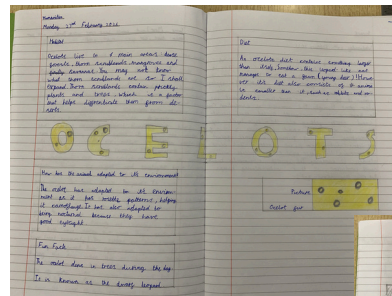 November
Monday 21st February 2022
Habitat
Ocelots live in 4 main areas: dense
forests, thorn scrublands mangroves and
savannas. You may not know
what thorn scrublands are so I shall
expand. Thorn scrublands contain prickly
plants and trees which is a factor
that helps differentiate them from de-
serts.
Diet
An ocelots diet contains anything larger
than itself, sometimes this leopard like cat
manages to eat a fawn (young deer)! However
it's diet also consists of animals
smaller than it such as rabbits and ro-
dents.
OCELOTS
How has the animal adapted to its environment
The ocelot has adapted to its environ-
ment as it has mottled patterns, helping
it camouflage. It has also adapted to
being nocturnal because they have
good eyesight
Picture
Ocelot fur
Fun Fact
The ocelot in trees during the day
It is known as the dwarf leopard